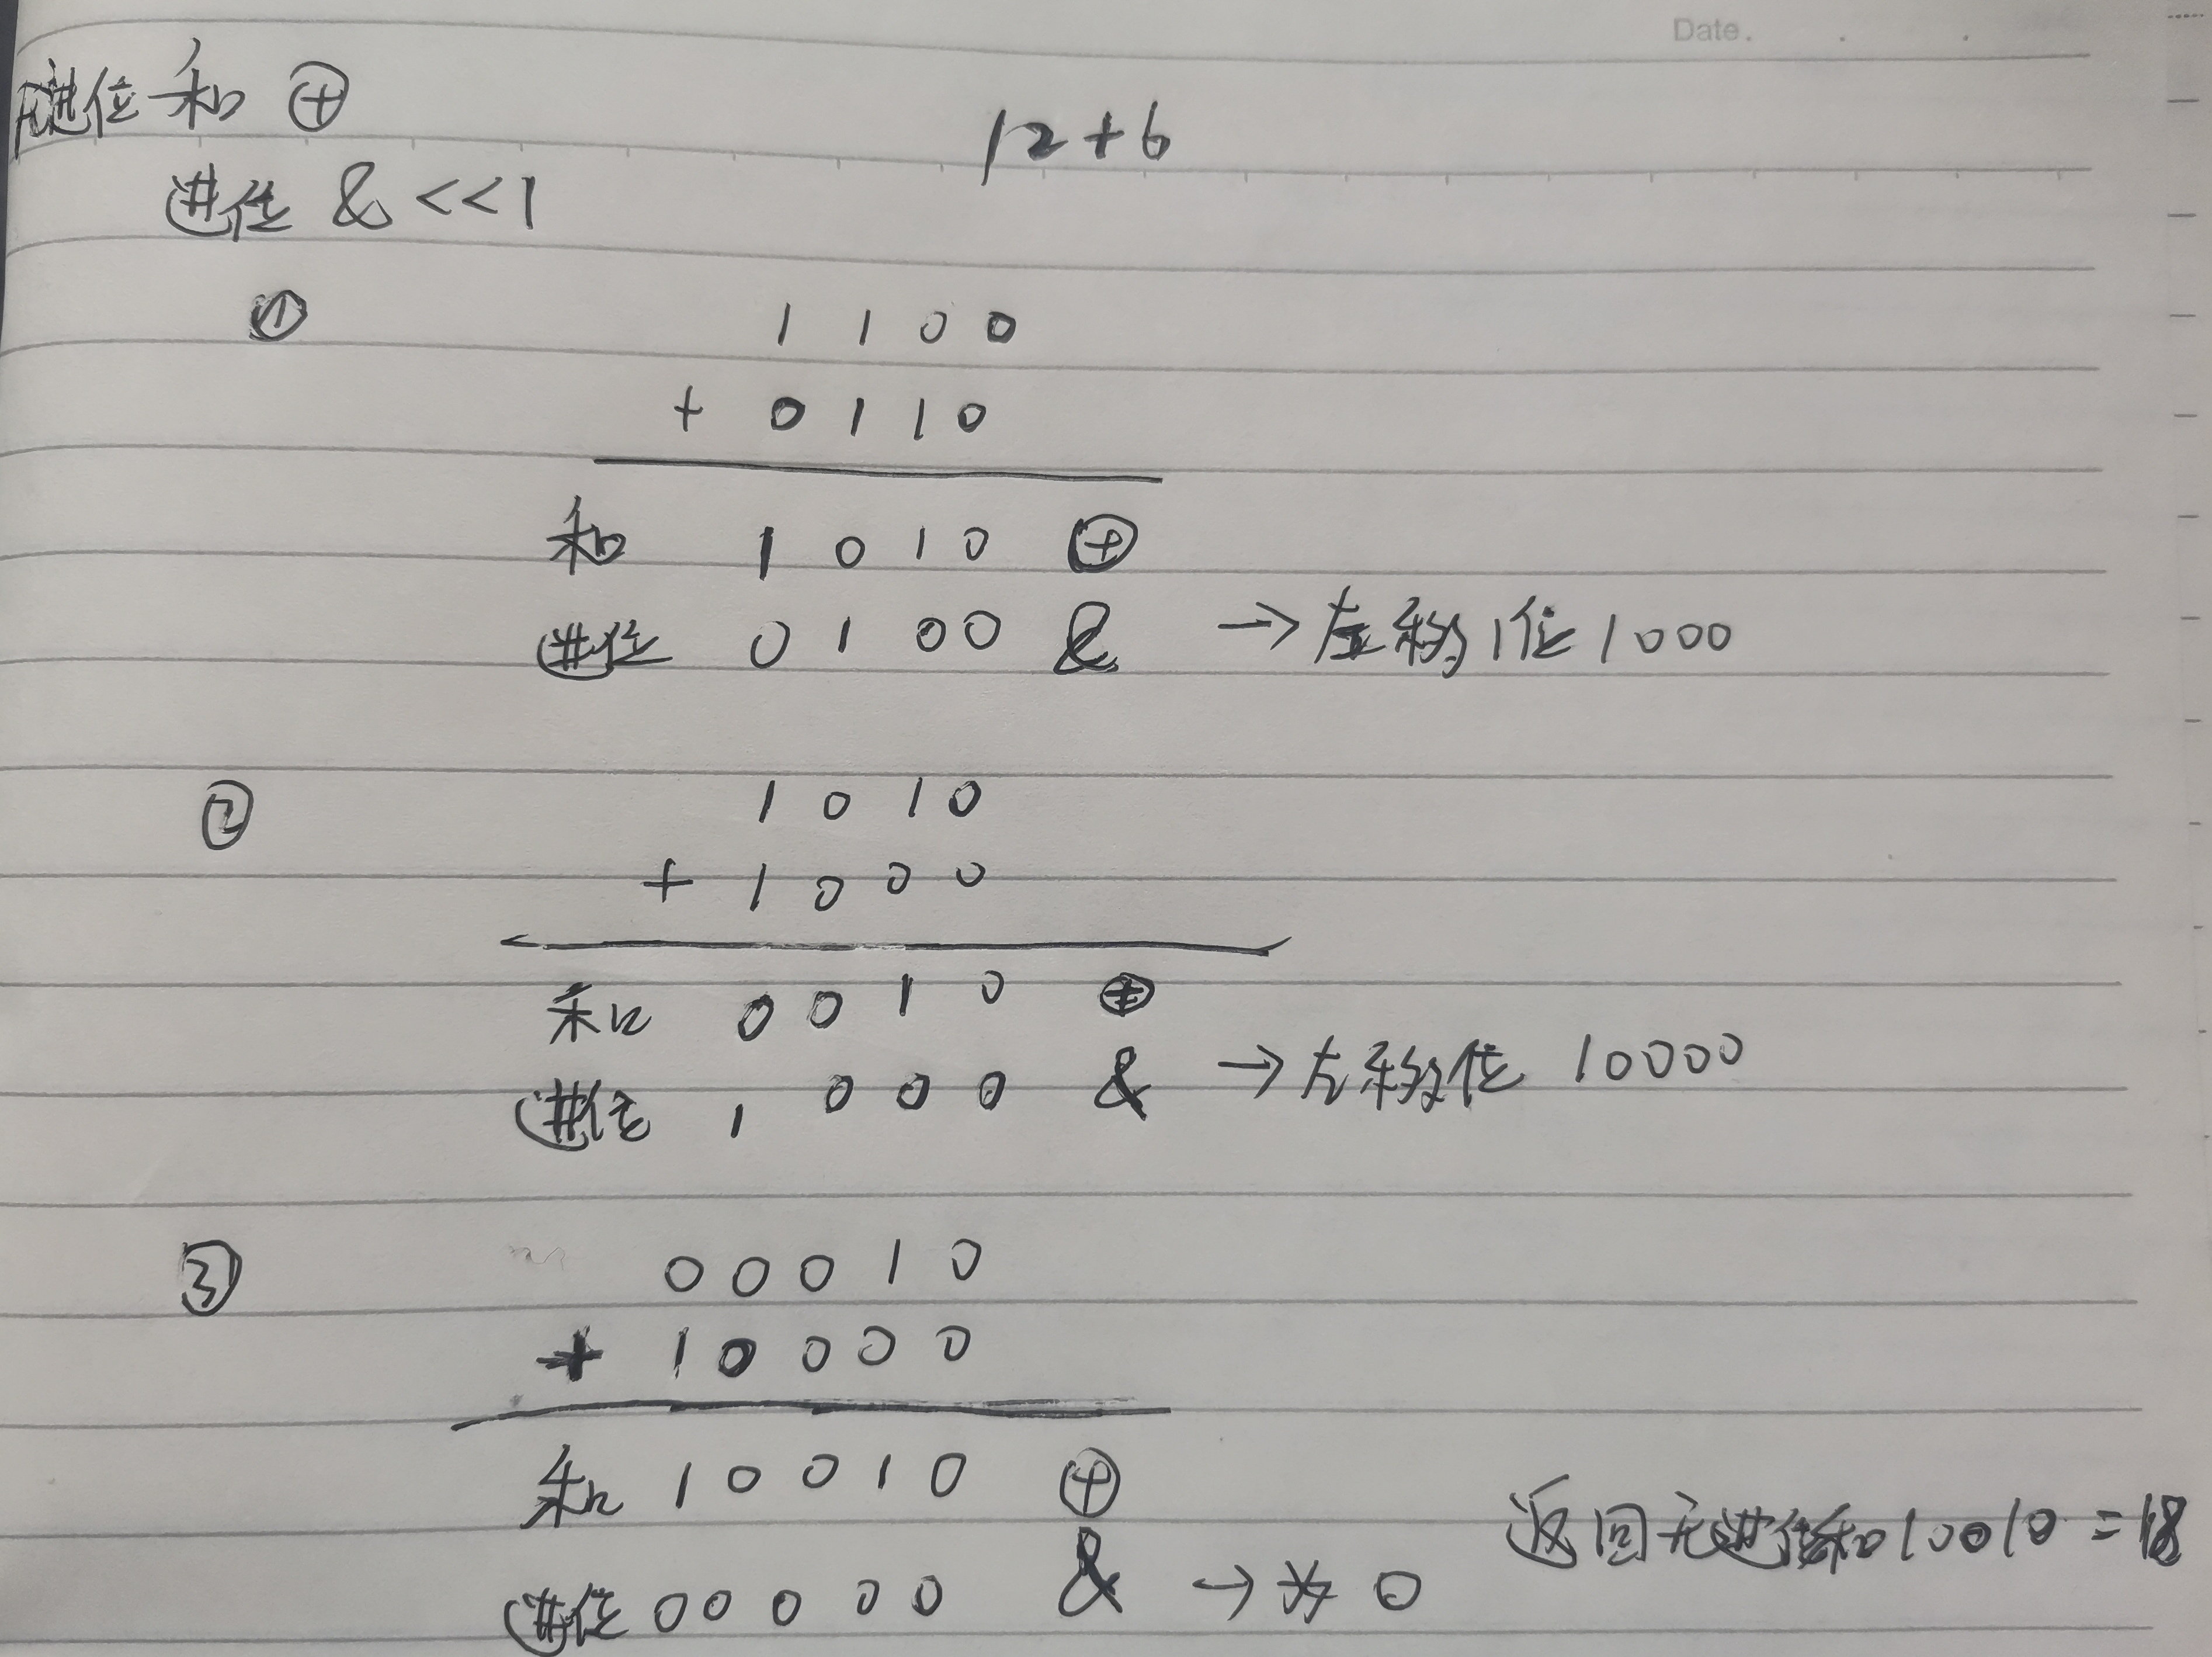 Date.
进位和 ⊕
12+6
进位 & <<1
① 1 1 0 0
+ 0 1 1 0
和 1 0 1 0 ⊕
进位 0 1 0 0 & → 左移1位 1000
② 1 0 1 0
+ 1 0 0 0
和 0 0 1 0 ⊕
进位 1 0 0 0 & → 左移位 10000
③ 0 0 0 1 0
+ 1 0 0 0 0
和 1 0 0 1 0 ⊕
返回无进位和10010=18
进位 0 0 0 0 0 & → 为 0